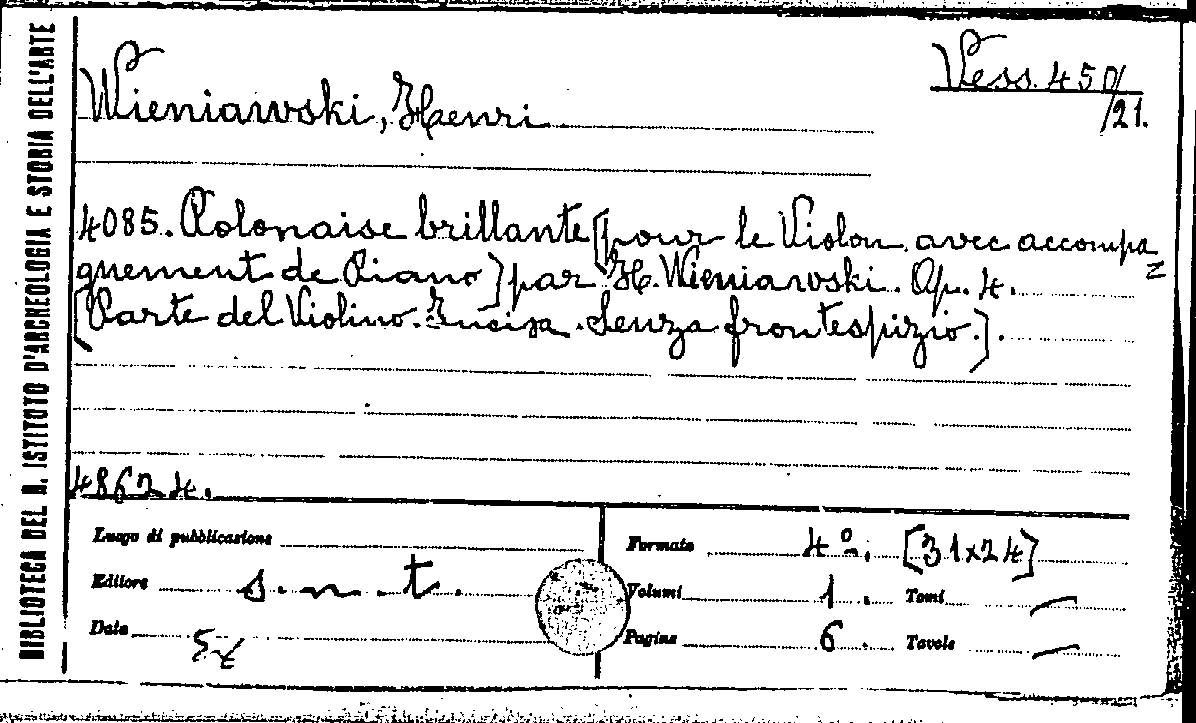 BIBLIOTECA DEL R. ISTITUTO D'ARCHEOLOGIA E STORIA DELL'ARTE
Vess. 450/
/21.
Wieniawski, Henri
4085. Polonaise brillante [pour le Violon avec accompa
gnement de Piano] par H. Wieniawski. Op. 4.
[Parte del Violino. Incisa. Senza frontespizio.].
48624.
Luogo di pubblicazione
Formato 4º. [31x24]
Editore s. n. t.
Volumi 1. Tomi —
Data
Pagine 6. Tavole —